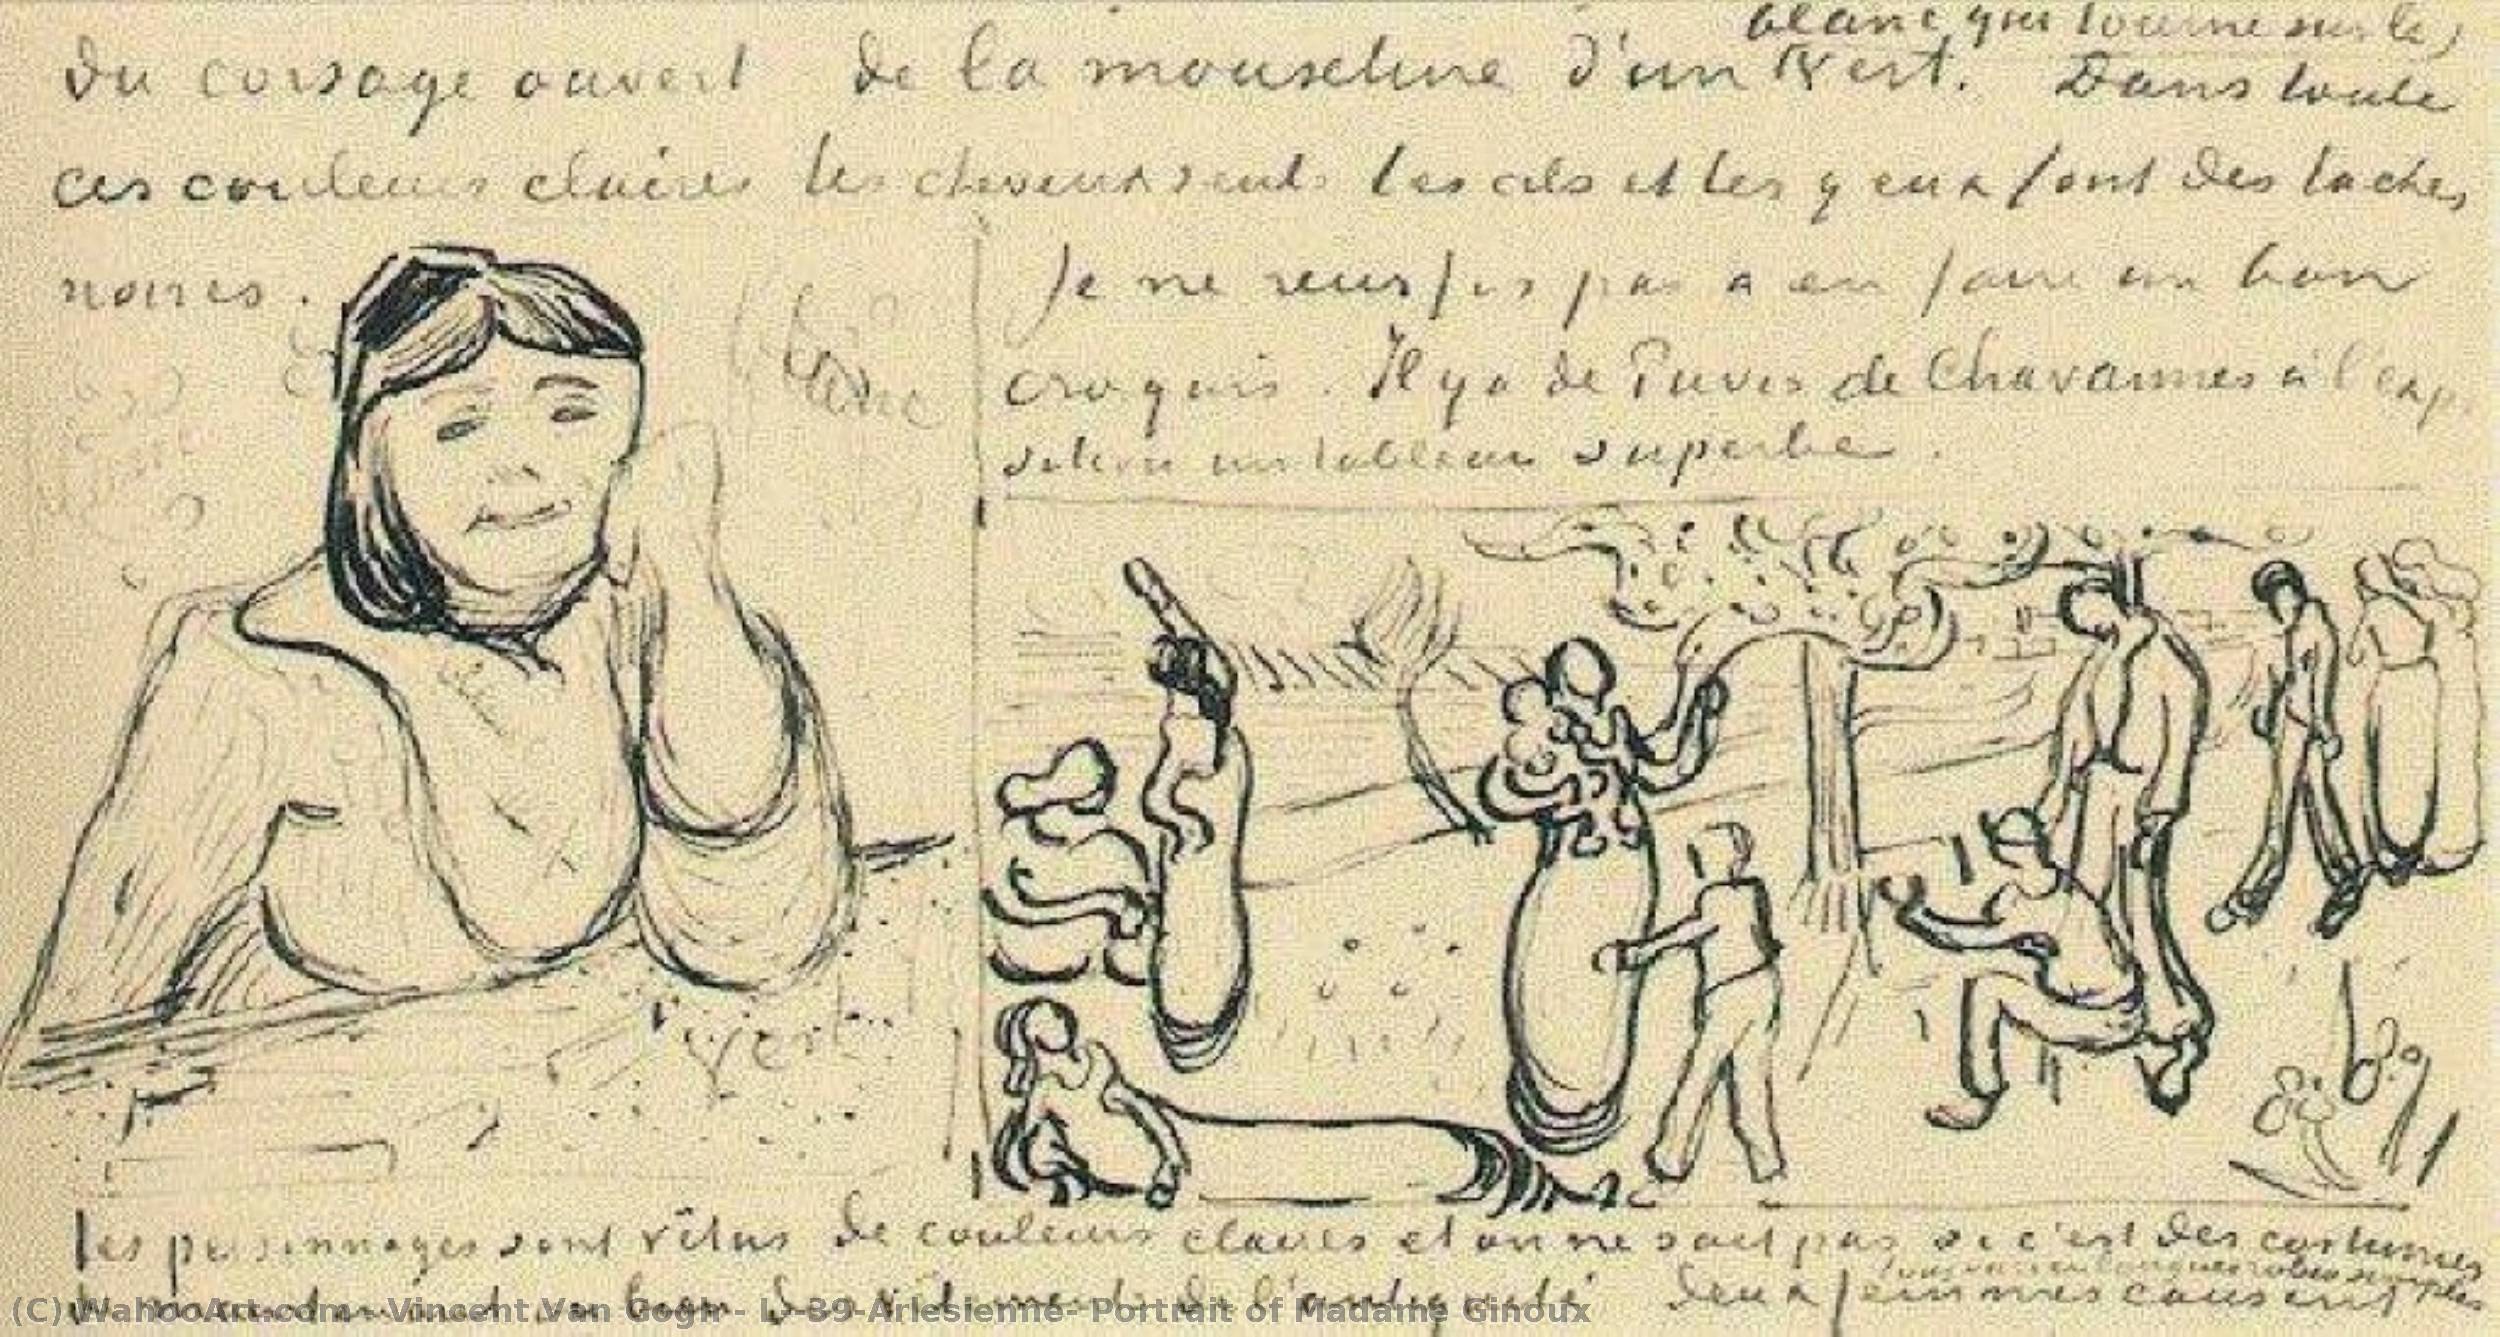 blanc qui tourne sur le
du corsage ouvert de la mousseline d'un vert. Dans toute
ces couleurs claires les cheveux seuls les cils et les yeux font des taches
noires.
Je ne reussis pas a en faire un bon
croquis. Il y a de Puvis de Chavannes à l'expo
sition un tableau superbe.
blanc
bleu
vert
les personnages sont vêtus de couleurs claires et on ne sait pas si c'est des costumes
de l'antiquité deux femmes causent
robes simples
(C) WahooArt.com - Vincent Van Gogh - L-39-Arlesienne- Portrait of Madame Ginoux